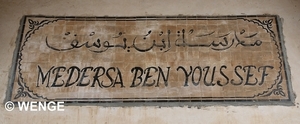 مدرسة ابن يوسف
MEDERSA BEN YOUSSEF
© WENGE